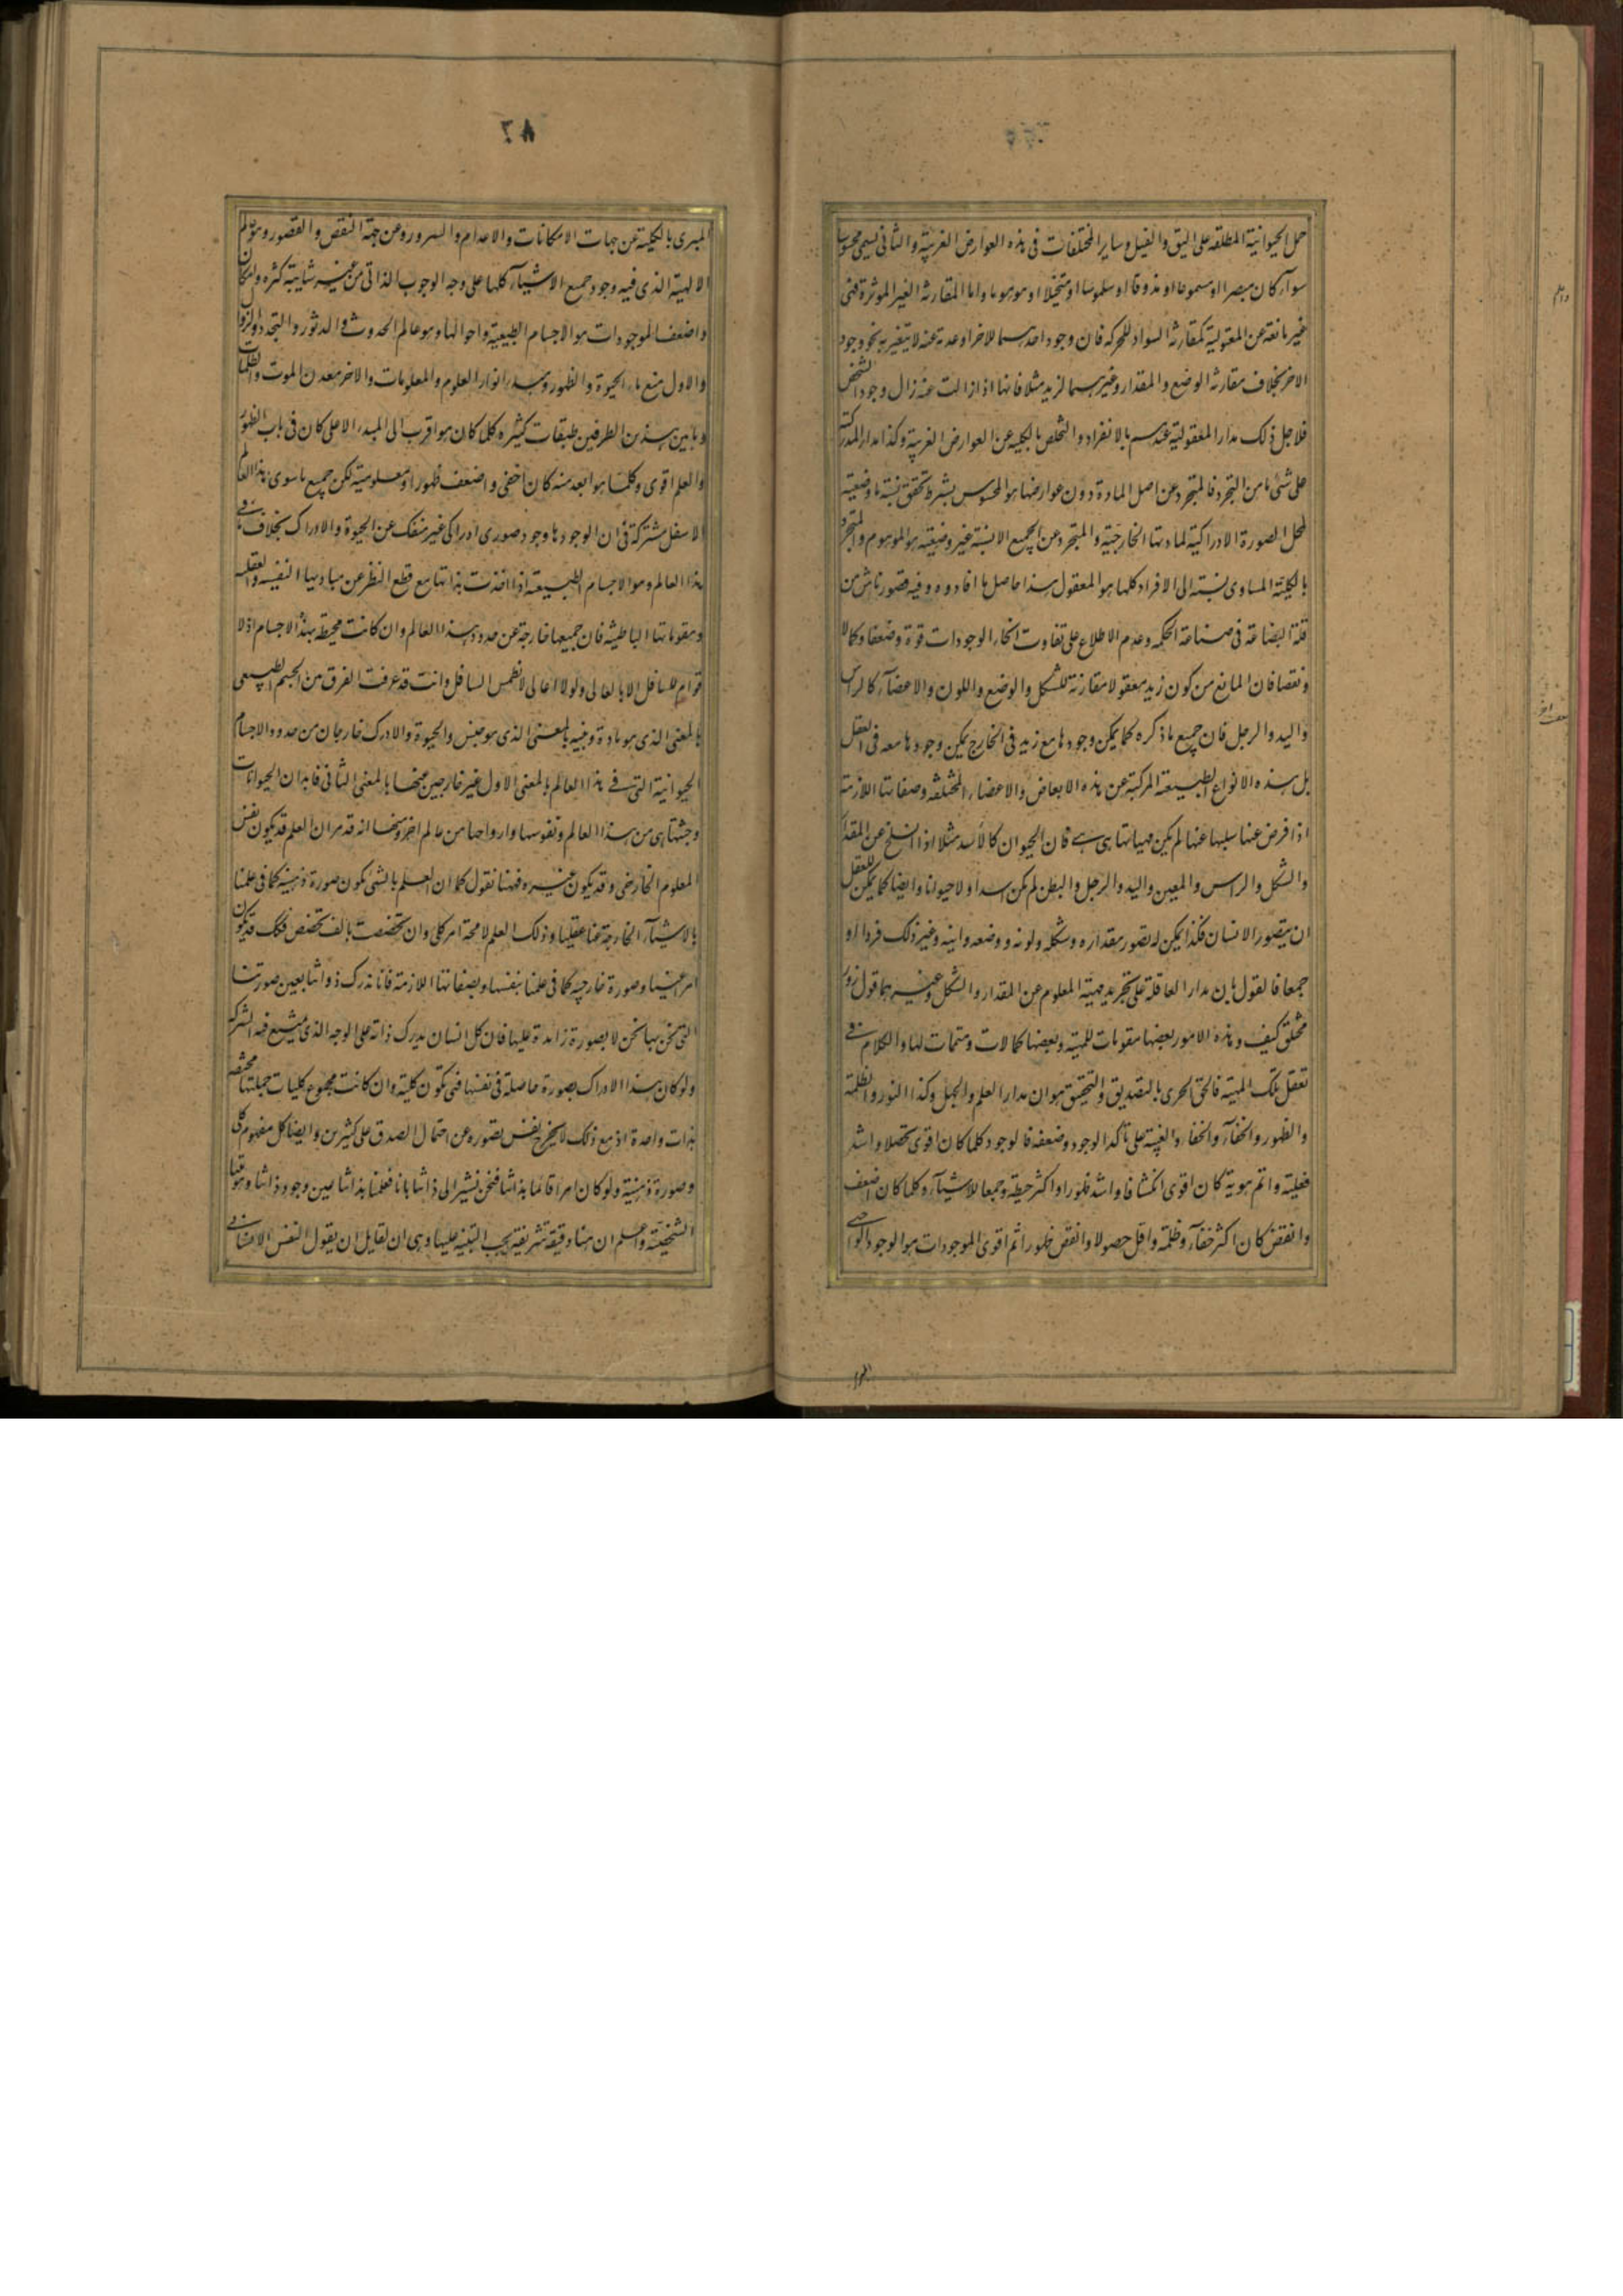 حمل الحيوانية المطلقة على البق والفيل وساير المختلفات فى هذه العوارض الغريبة والثانى يسمى محسوسا
سواء كان مبصرا او مسموعا او مذوقا او ملموسا او متخيلا او موهوما واما المقارنة الغير الموثرة فهى
غير مانعة عن المعقولية كمقارنة السواد للحركة فان وجود احدهما للاخر او عدمه عنه لا يتغير به نحو وجود
الاخر بخلاف مقارنة الوضع والمقدار وغيرهما لزيد مثلا فانها اذا زالت عنه زال وجود الشخص
فلاجل ذلك مدار المعقولية عندهم بالانفراد والتخلص بالكلية عن العوارض الغريبة وكذا مدار المدركية
على شئ ما من التجرد فالمتجرد عن اصل المادة دون عوارضها هو المحسوس بشرط تحقق نسبة ما وضعية
لمحل الصورة الادراكية لمادتها الخارجية والمتجرد عن الجميع الا نسبة غير وضعية هو الموهوم والمتجرد
بالكلية المساوى نسبته الى الافراد كلها هو المعقول هذا حاصل ما افادوه وفيه قصور ناش من
قلة البضاعة فى صناعة الحكمة وعدم الاطلاع على تفاوت انحاء الوجودات قوة وضعفا وكمالا
ونقصا فان المانع من كون زيد معقولا مقارنة للشكل والوضع واللون والاعضاء كالراس
واليد والرجل فان جميع ما ذكره كما يمكن وجودها مع زيد فى الخارج يمكن وجودها معه فى العقل
بل هذه الانواع الطبيعية المركبة عن هذه الابعاض والاعضاء المختلفة وصفاتها اللازمة
اذا فرض عنها سلبها عنها لم يكن مهياتها هى هى فان الحيوان كالاسد مثلا اذا انسلخ عن المقدار
والشكل والراس والعين واليد والرجل والبطن لم يكن اسدا ولا حيوانا وايضا كما يمكن للعقل
ان يتصور الانسان فكذا يمكن له تصور مقداره وشكله ولونه ووضعه واينه وغير ذلك فردا او
جمعا فالقول بان مدار العاقلة على تجريد مهية المعلوم عن المقدار والشكل وغيرهما قول زور
مختلق كيف وهذه الامور بعضها مقومات للمهية وبعضها كمالات ومتممات لها والكلام فى
تعقل تلك المهية فالحق الحرى بالتصديق والتحقيق هو ان مدار العلم والجهل وكذا النور والظلمة
والظهور والخفاء والغيبة على تاكد الوجود وضعفه فالوجود كلما كان اقوى تحصلا واشد
فعلية واتم هوية كان اقوى انكشافا واشد ظهورا واكثر حيطة وجمعا للاشياء وكلما كان اضعف
وانقص كان اكثر خفاء وظلمة واقل حصولا وانقص ظهورا ثم اقوى الموجودات هو الوجود الواجبى
المبرى بالكلية عن جهات الامكانات والاعدام والسرور وعن جهة النقص والقصور وهو عالم
الالهية الذى فيه وجود جميع الاشياء كلها على وجه الوجوب الذاتى من غير شايبة كثرة وامكان
واضعف الموجودات هو الاجسام الطبيعية واحوالها وهو عالم الحدوث والدثور والتجدد والزوال
والاول منبع ماء الحيوة والظهور ومبدا انوار العلوم والمعلومات والاخر معدن الموت والظلمات
وما بين هذين الطرفين طبقات كثيرة كلما كان هو اقرب الى المبدء الاعلى كان فى باب الظهور
والعلم اقوى وكلما هو ابعد منه كان اخفى واضعف ظهورا ومعلومية لكن جميع ما سوى هذا العالم
الاسفل مشتركة فى ان الوجودها وجود صورى ادراكى غير منفك عن الحيوة والادراك بخلاف ما فى
هذا العالم وهو الاجسام الطبيعية اذا اخذت بذاتها مع قطع النظر عن مباديها النفسية والعقلية
ومقوماتها الباطنية فان جميعها خارجة عن حدود هذا العالم وان كانت محيطة بهذه الاجسام اذ لا
قوام للسافل الا بالعالى ولولا العالى لانطمس السافل وانت قد عرفت الفرق من الجسم الطبيعى
بالمعنى الذى هو مادة وبينه بالمعنى الذى هو جنس والحيوة والادراك خارجان من حدود الاجسام
الحيوانية التى فى هذا العالم بالمعنى الاول غير خارجين منها بالمعنى الثانى فابدان الحيوانات
وجثتها هى من هذا العالم ونفوسها وارواحها من عالم اخر ومنها انه قد مر ان العلم قد يكون نفس
المعلوم الخارجى وقد يكون غيره فههنا نقول كما ان العلم بالشئ يكون صورة ذهنية كما فى علمنا
بالاشياء الخارجة عنا عقليا وذلك العلم لا محة امر كلى وان تخصصت بالف تخصص فكك قد يكون
امرا عينيا وصورة خارجية كما فى علمنا بنفسها وبصفاتها اللازمة فانا ندرك ذواتنا بعين صورتنا
التى نحن بها نحن لا بصورة زايدة عليها فان كل انسان يدرك ذاته على الوجه الذى يمتنع فيه الشركة
ولو كان هذا الادراك بصورة حاصلة فى نفسها فهى تكون كلية وان كانت مجموع كليات جملتها مختصة
بذات واحدة اذ مع ذلك لا يخرج نفس تصوره عن احتمال الصدق على كثيرين وايضا كل مفهوم كلى
وصورة ذهنية ولو كان امرا قائما بذاتنا فنحن نشير الى ذاتنا بانا فعلمنا بذاتنا عين وجود ذاتنا وهويتنا
الشخصية واعلم ان هنا دقيقة شريفة يجب التنبيه عليها وهى ان لقايل ان يقول النفس الانسانية